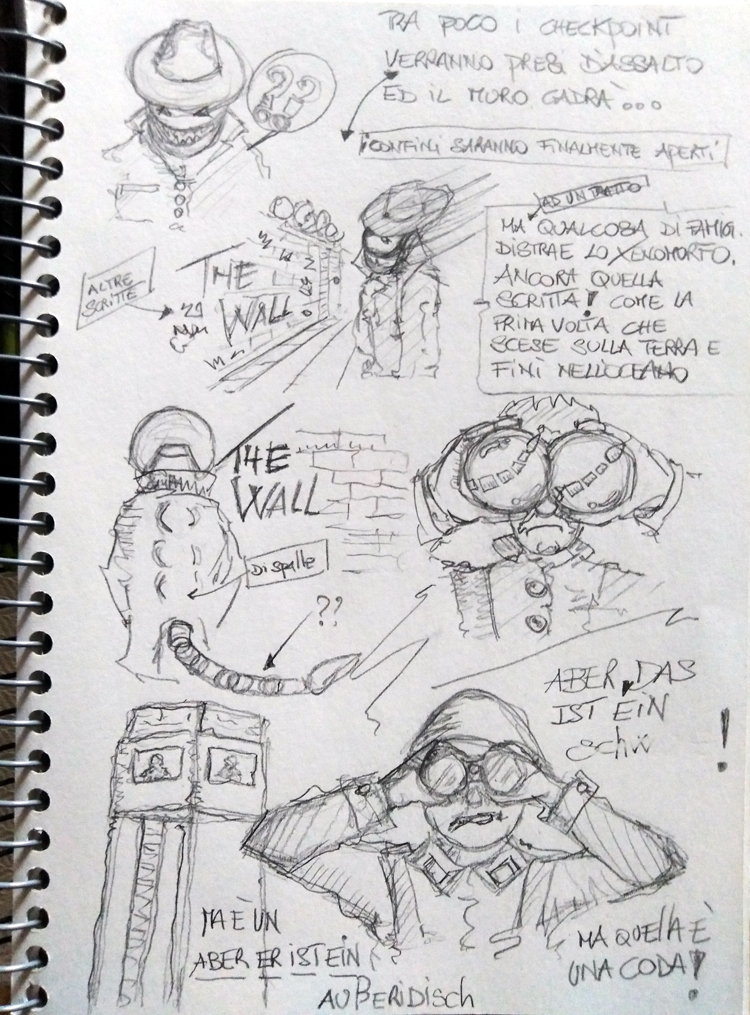 TRA POCO I CHECKPOINT
VERRANNO PRESI D'ASSALTO
ED IL MURO CADRÀ...
I CONFINI SARANNO FINALMENTE APERTI
??
AD UN TRATTO
MA QUALCOSA DI FAMIGL.
DISTRAE LO XENOMORFO.
ANCORA QUELLA
SCRITTA! COME LA
PRIMA VOLTA CHE
SCESE SULLA TERRA E
FINÌ NELL'OCEANO
ALTRE
SCRITTE
THE
WALL
THE
WALL
DI SPALLE
??
ABER, DAS
IST EIN
SCHW
!
MA È UN
ABER ER IST EIN
AUßERIDISCH
MA QUELLA È
UNA CODA!